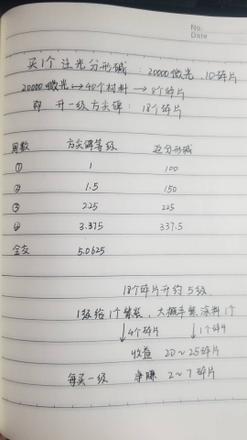 No.
Date
买1个 泛光分形碱：20000微光，10碎片
20000微光→40个材料→8个碎片
即 升一级方尖碑：18个碎片
周数 方尖碑等级 泛分形碱
① 1 100
② 1.5 150
③ 2.25 225
④ 3.375 337.5
⑤ 5.0625
18个碎片升约5级
1级给1个 大概率 涂料1个
↓4个碎片 ↓1个碎片
收益 20~25碎片
每买一级 净赚 2~7碎片